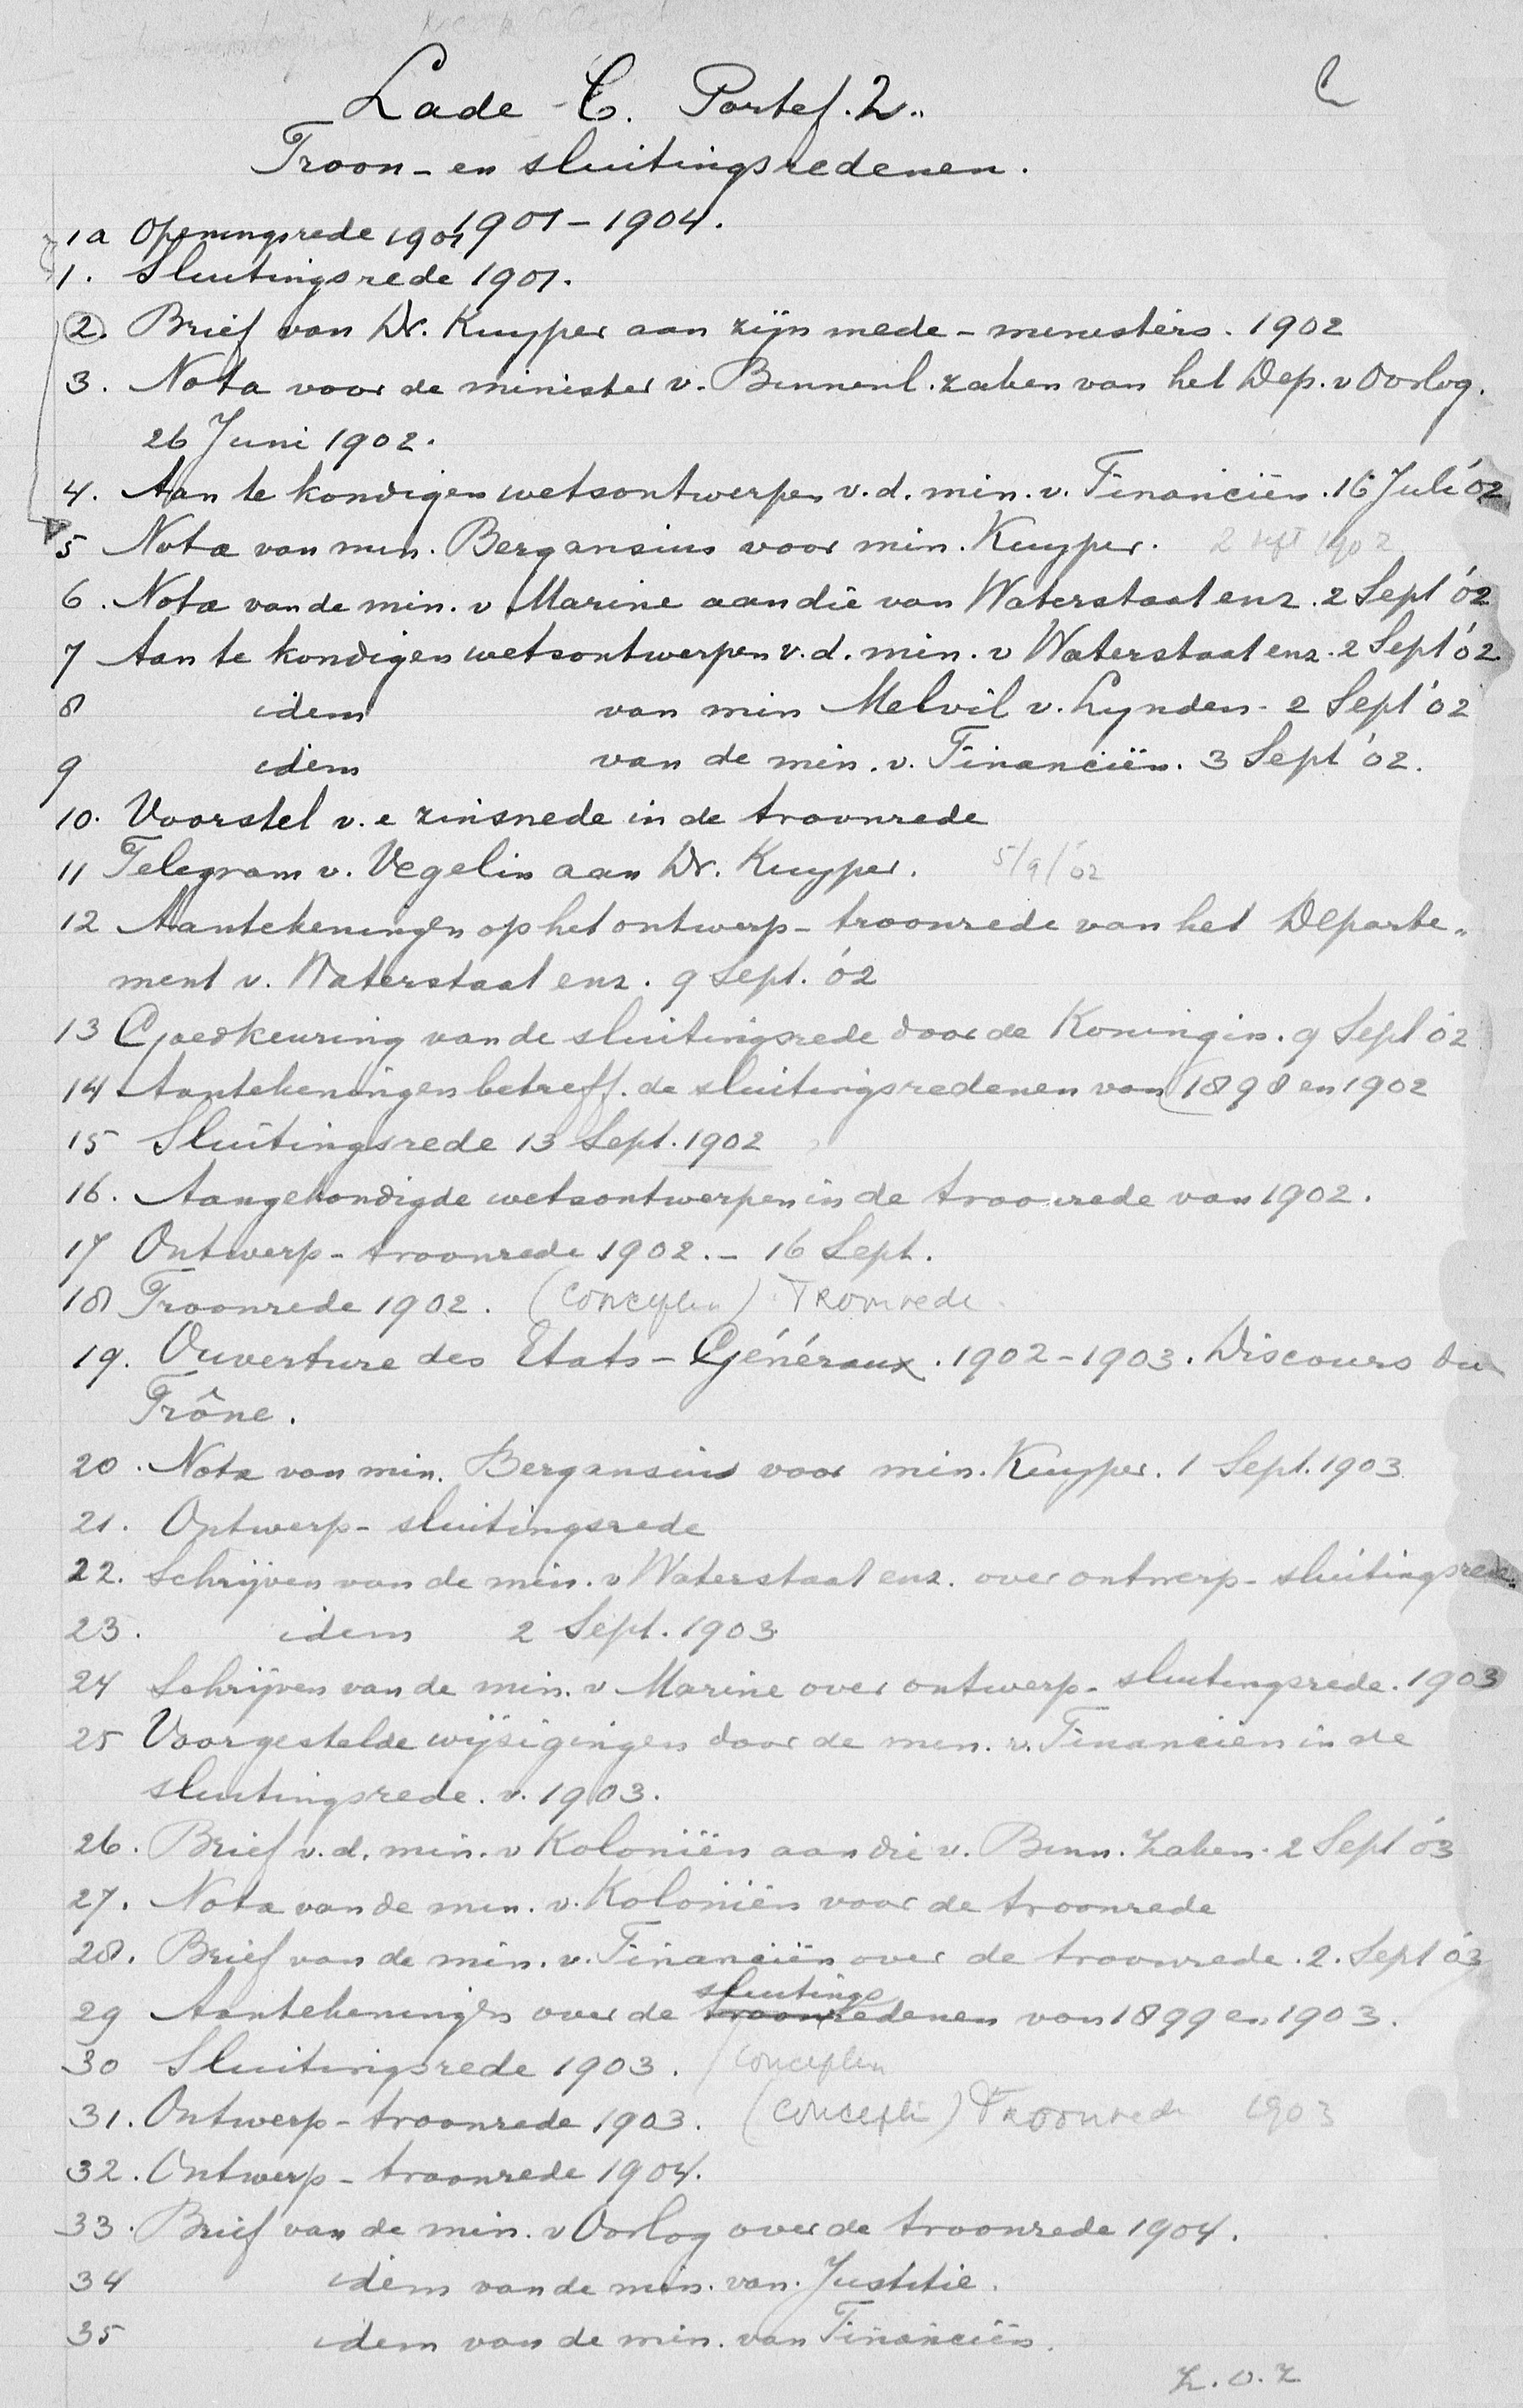 Lade - C. Portef. 2.
Troon- en sluitingsredenen.
1901-1904.
1a Openingsrede 1901
1. Sluitingsrede 1901.
2. Brief van Dr. Kuyper aan zijn mede-ministers. 1902
3. Nota voor de minister v. Binnenl. zaken van het Dep. v Oorlog.
26 Juni 1902.
4. Aan te kondigen wetsontwerpen v.d. min. v. Financiën. 16 Juli '02
5 Nota van min. Bergansius voor min. Kuyper. 2 sept 1902
6. Nota van de min. v Marine aan die van Waterstaat enz. 2 Sept '02
7 Aan te kondigen wetsontwerpen v.d. min. v Waterstaat enz. 2 Sept '02
8 idem van min Melvil v. Lynden. 2 Sept '02
9 idem van de min. v. Financiën. 3 Sept '02.
10. Voorstel v. e zinsnede in de troonrede
11 Telegram v. Vegelin aan Dr. Kuyper. 5/9/'02
12 Aantekeningen op het ontwerp-troonrede van het Departe-
ment v. Waterstaat enz. 9 Sept. '02
13 Goedkeuring van de sluitingsrede door de Koningin. 9 Sept '02
14 Aantekeningen betreff. de sluitingsredenen van 1898 en 1902
15 Sluitingsrede 13 Sept. 1902
16. Aangekondigde wetsontwerpen in de troonrede van 1902.
17 Ontwerp-troonrede 1902. - 16 Sept.
18 Troonrede 1902. (Concepten) Troonrede
19. Ouverture des Etats-Généraux. 1902-1903. Discours du
Trône.
20. Nota van min. Bergansius voor min. Kuyper. 1 Sept. 1903
21. Ontwerp-sluitingsrede
22. Schrijven van de min. v Waterstaat enz. over ontwerp-sluitingsrede.
23. idem 2 Sept. 1903
24 Schrijven van de min. v Marine over ontwerp-sluitingsrede. 1903
25 Voorgestelde wijsigingen door de min. v. Financiën in de
sluitingsrede. v. 1903.
26. Brief v.d. min. v Koloniën aan die v. Binn. Zaken. 2 Sept '03
27. Nota van de min. v. Koloniën voor de troonrede
28. Brief van de min. v. Financiën over de troonrede. 2. Sept '03
sluitings
29 Aantekeningen over de troonredenen van 1899 en 1903.
30 Sluitingsrede 1903. (Concepten
31. Ontwerp-troonrede 1903. (Concepten) Troonrede 1903
32. Ontwerp-troonrede 1904.
33. Brief van de min. v Oorlog over de troonrede 1904.
34 idem van de min. van. Justitie.
35 idem van de min. van Financiën.
Z.O.Z